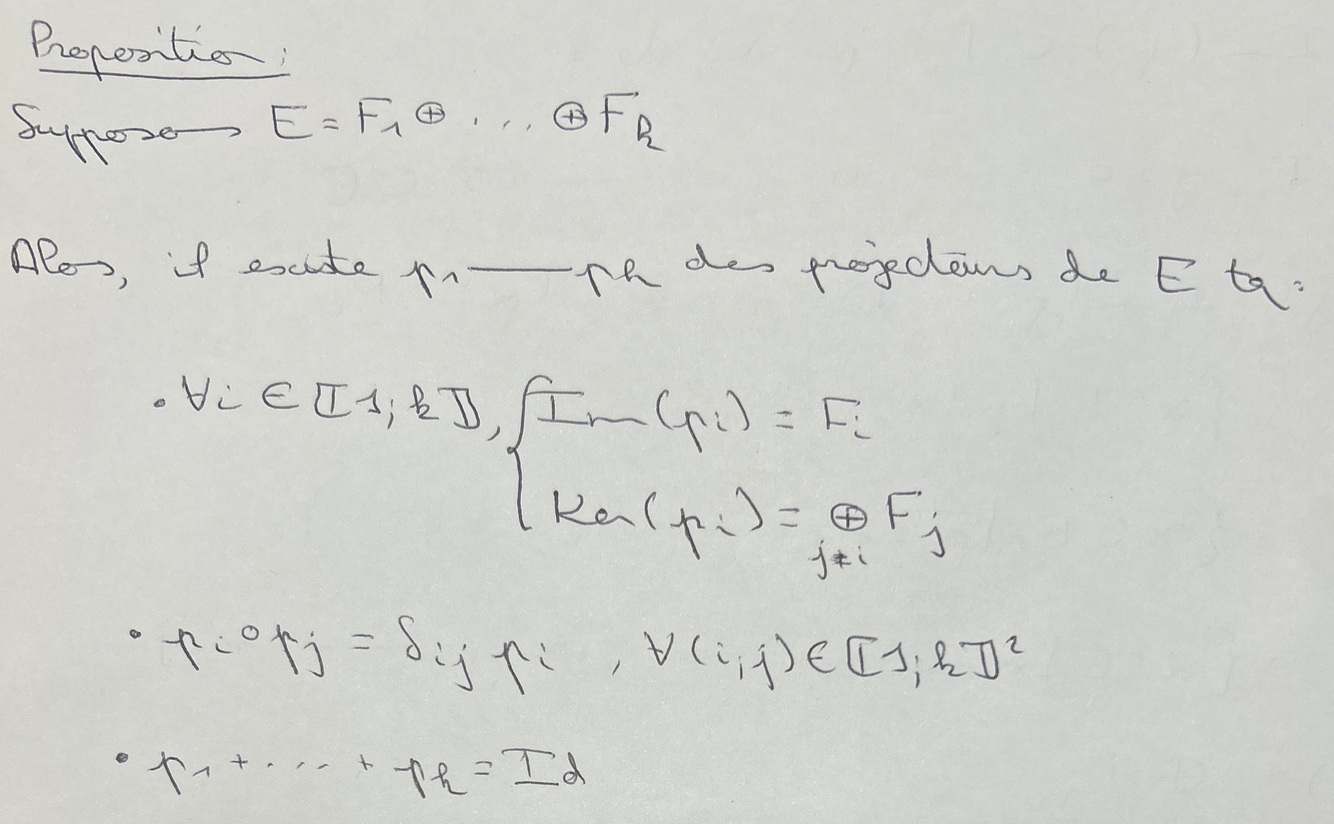 Proposition :
Supposons E = F₁ ⊕ ... ⊕ Fₖ
Alors, il existe p₁ — pₖ des projecteurs de E tq :
• ∀i ∈ ⟦1; k⟧, { Im(pᵢ) = Fᵢ
Ker(pᵢ) = ⊕_{j≠i} Fⱼ
• pᵢ ∘ pⱼ = δᵢⱼ pᵢ , ∀(i,j) ∈ ⟦1; k⟧²
• p₁ + ... + pₖ = Id